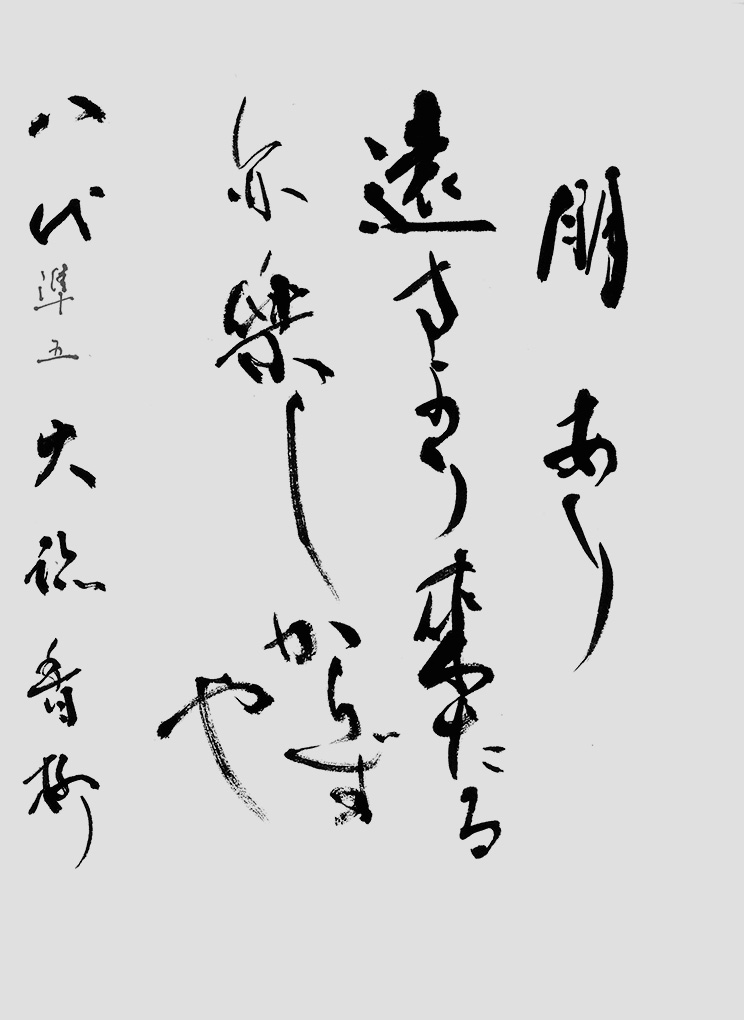 朋あり
遠方より来たる
亦楽しからずや
八代準五 大 香